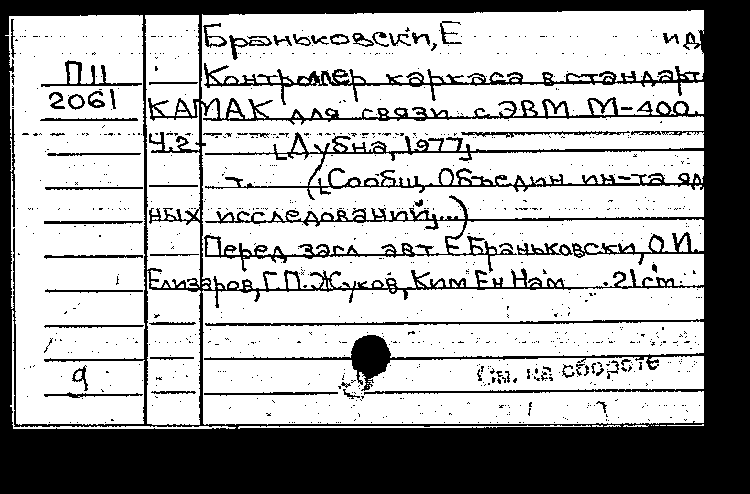 Браньковски, Е и др
П11
Контроллер каркаса в стандарт
2061
КАМАК для связи с ЭВМ М-400.
Ч.2-
[Дубна, 1977]
т. ([Сообщ. Объедин. ин-та яд
ных исследований]...)
Перед загл. авт. Е. Браньковски, О.И.
Елизаров, Г.П. Жуков, Ким Ен Нам. 21 cm.
9
См. на обороте